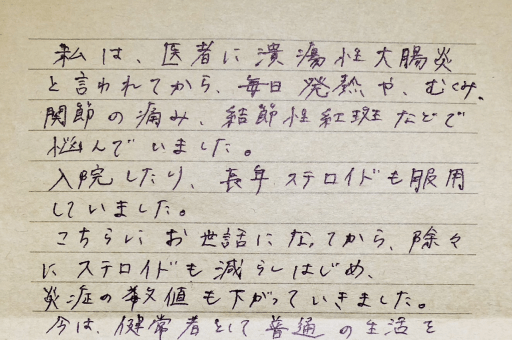 私は、医者に潰瘍性大腸炎
と言われてから、毎日発熱や、むくみ、
関節の痛み、結節性紅斑などで
悩んでいました。
入院したり、長年ステロイドも服用
していました。
こちらにお世話になってから、除々
にステロイドも減らしはじめ、
炎症の数値も下がっていきました。
今は、健常者として普通の生活を